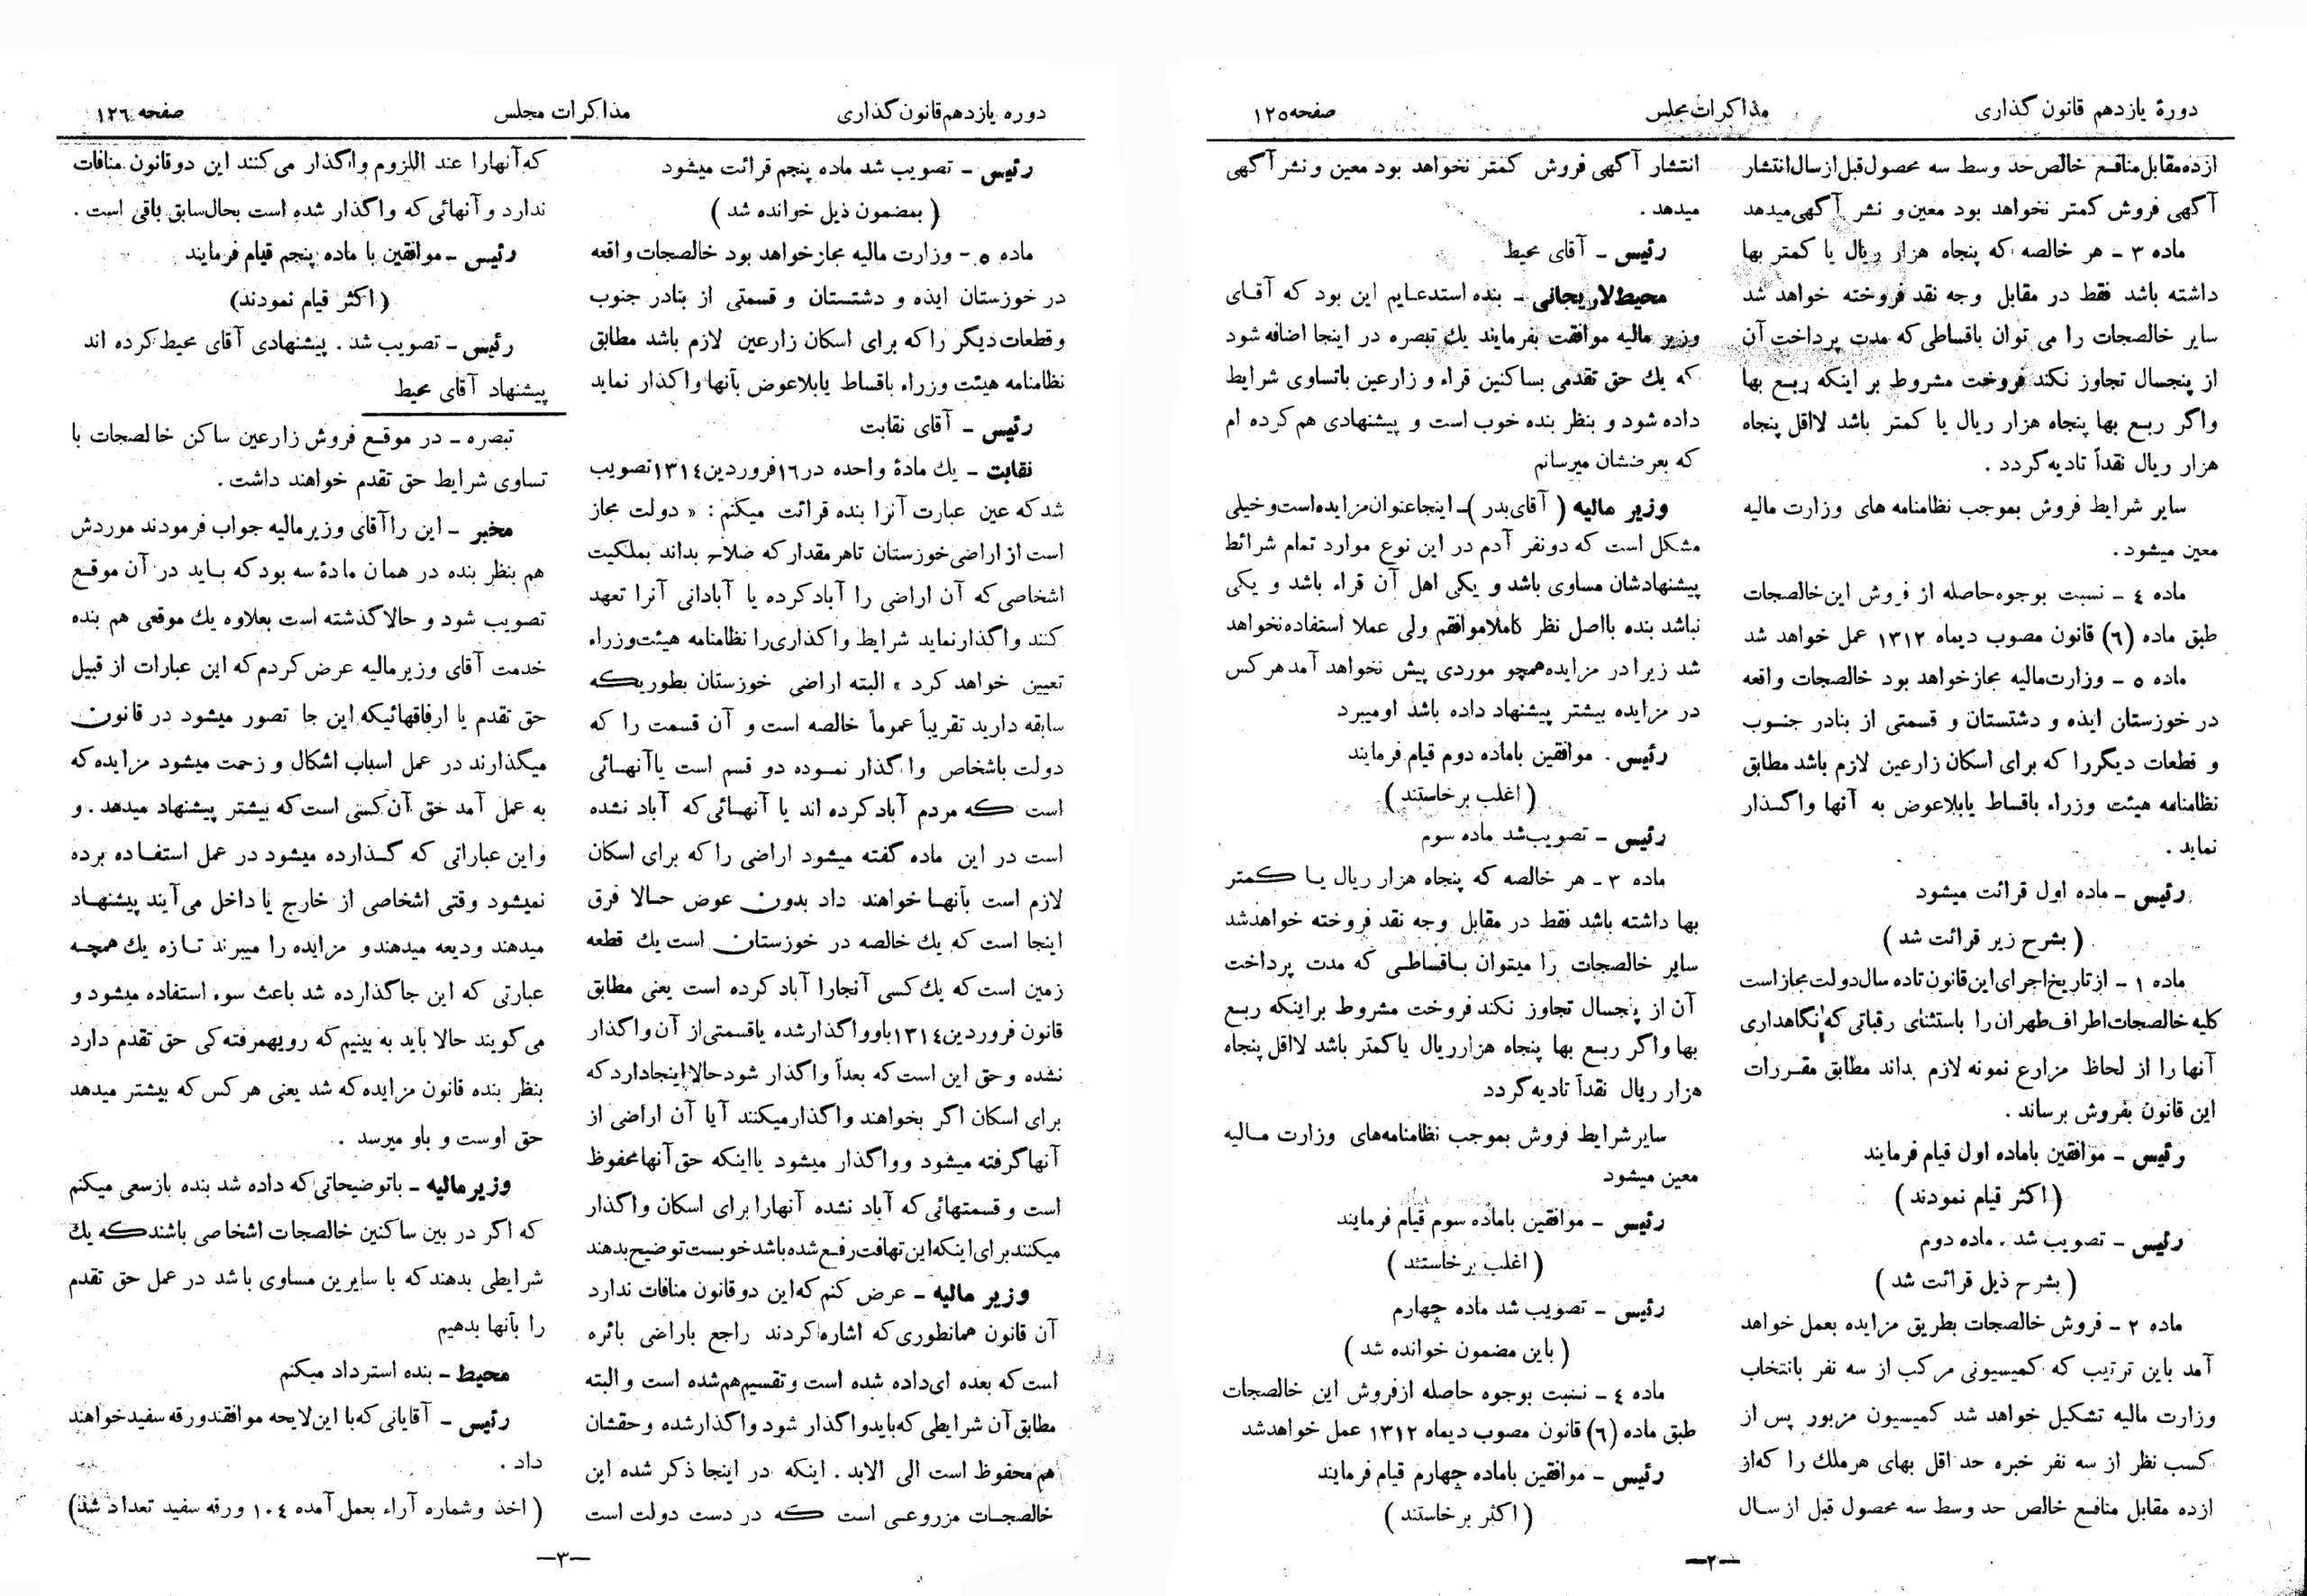 دورۀ یازدهم قانون گذاری
مذاکرات مجلس
صفحه ۱۲۵
ازده مقابل منافع خالص حد وسط سه محصول قبل از سال انتشار
آگهی فروش کمتر نخواهد بود معین و نشر آگهی میدهد
ماده ۳ ـ هر خالصه که پنجاه هزار ریال یا کمتر بها
داشته باشد فقط در مقابل وجه نقد فروخته خواهد شد
سایر خالصجات را می توان باقساطی که مدت پرداخت آن
از پنجسال تجاوز نکند فروخت مشروط بر اینکه ربع بها
واگر ربع بها پنجاه هزار ریال یا کمتر باشد لااقل پنجاه
هزار ریال نقداً تادیه گردد .
سایر شرایط فروش بموجب نظامنامه های وزارت مالیه
معین میشود .
ماده ٤ ـ نسبت بوجوه حاصله از فروش این خالصجات
طبق ماده (٦) قانون مصوب دیماه ۱۳۱۲ عمل خواهد شد
ماده ٥ ـ وزارت مالیه مجاز خواهد بود خالصجات واقعه
در خوزستان ایذه و دشتستان و قسمتی از بنادر جنوب
و قطعات دیگر را که برای اسکان زارعین لازم باشد مطابق
نظامنامه هیئت وزراء باقساط یابلاعوض به آنها واگذار
نماید .
رئیس ـ ماده اول قرائت میشود
( بشرح زیر قرائت شد )
ماده ۱ ـ از تاریخ اجرای این قانون تاده سال دولت مجاز است
کلیه خالصجات اطراف طهران را باستثنای رقباتی که نگاهداری
آنها را از لحاظ مزارع نمونه لازم بداند مطابق مقررات
این قانون بفروش برساند .
رئیس ـ موافقین باماده اول قیام فرمایند
( اکثر قیام نمودند )
رئیس ـ تصویب شد . ماده دوم
( بشرح ذیل قرائت شد )
ماده ۲ ـ فروش خالصجات بطریق مزایده بعمل خواهد
آمد باین ترتیب که کمیسیونی مرکب از سه نفر بانتخاب
وزارت مالیه تشکیل خواهد شد کمیسیون مزبور پس از
کسب نظر از سه نفر خبره حد اقل بهای هر ملك را که از
ازده مقابل منافع خالص حد وسط سه محصول قبل از سال
انتشار آگهی فروش کمتر نخواهد بود معین و نشر آگهی
میدهد .
رئیس ـ آقای محیط
محیط لاریجانی ـ بنده استدعایم این بود که آقای
وزیر مالیه موافقت بفرمایند یك تبصره در اینجا اضافه شود
که یك حق تقدمی بساکنین قراء و زارعین باتساوی شرایط
داده شود و بنظر بنده خوب است و پیشنهادی هم کرده ام
که بعرضشان میرسانم
وزیر مالیه ( آقای بدر ) ـ اینجا عنوان مزایده است و خیلی
مشکل است که دونفر آدم در این نوع موارد تمام شرائط
پیشنهادشان مساوی باشد و یکی اهل آن قراء باشد و یکی
نباشد بنده بااصل نظر کاملا موافقم ولی عملا استفاده نخواهد
شد زیرا در مزایده همچو موردی پیش نخواهد آمد هر کس
در مزایده بیشتر پیشنهاد داده باشد او میبرد
رئیس . موافقین باماده دوم قیام فرمایند
( اغلب برخاستند )
رئیس ـ تصویب شد ماده سوم
ماده ۳ ـ هر خالصه که پنجاه هزار ریال یا کمتر
بها داشته باشد فقط در مقابل وجه نقد فروخته خواهد شد
سایر خالصجات را میتوان باقساطی که مدت پرداخت
آن از پنجسال تجاوز نکند فروخت مشروط بر اینکه ربع
بها واگر ربع بها پنجاه هزار ریال یا کمتر باشد لااقل پنجاه
هزار ریال نقداً تادیه گردد
سایر شرایط فروش بموجب نظامنامه‌های وزارت مالیه
معین میشود
رئیس ـ موافقین باماده سوم قیام فرمایند
( اغلب برخاستند )
رئیس ـ تصویب شد ماده چهارم
( باین مضمون خوانده شد )
ماده ٤ ـ نسبت بوجوه حاصله از فروش این خالصجات
طبق ماده (٦) قانون مصوب دیماه ۱۳۱۲ عمل خواهد شد
رئیس ـ موافقین باماده چهارم قیام فرمایند
( اکثر برخاستند )
—۲—
دوره یازدهم قانون گذاری
مذاکرات مجلس
صفحه ۱۲٦
رئیس ـ تصویب شد ماده پنجم قرائت میشود
( بمضمون ذیل خوانده شد )
ماده ٥ ـ وزارت مالیه مجاز خواهد بود خالصجات واقعه
در خوزستان ایذه و دشتستان و قسمتی از بنادر جنوب
و قطعات دیگر را که برای اسکان زارعین لازم باشد مطابق
نظامنامه هیئت وزراء باقساط یابلاعوض بآنها واگذار نماید
رئیس ـ آقای نقابت
نقابت ـ یك مادۀ واحده در ۱٦ فروردین ۱۳۱٤ تصویب
شد که عین عبارت آنرا بنده قرائت میکنم : « دولت مجاز
است از اراضی خوزستان تاهر مقدار که صلاح بداند بملکیت
اشخاصی که آن اراضی را آباد کرده یا آبادانی آنرا تعهد
کنند واگذار نماید شرایط واگذاری را نظامنامه هیئت وزراء
تعیین خواهد کرد » البته اراضی خوزستان بطوریکه
سابقه دارید تقریباً عموماً خالصه است و آن قسمت را که
دولت باشخاص واگذار نموده دو قسم است یا آنهائی
است که مردم آباد کرده اند یا آنهائی که آباد نشده
است در این ماده گفته میشود اراضی را که برای اسکان
لازم است بآنها خواهند داد بدون عوض حالا فرق
اینجا است که یك خالصه در خوزستان است یك قطعه
زمین است که یك کسی آنجا را آباد کرده است یعنی مطابق
قانون فروردین ۱۳۱٤ باو واگذار شده یاقسمتی از آن واگذار
نشده و حق این است که بعداً واگذار شود حالا اینجا دارد که
برای اسکان اگر بخواهند واگذار میکنند آیا آن اراضی از
آنها گرفته میشود وواگذار میشود یا اینکه حق آنها محفوظ
است و قسمتهائی که آباد نشده آنهارا برای اسکان واگذار
میکنند برای اینکه این تهافت رفع شده باشد خوبست توضیح بدهند
وزیر مالیه ـ عرض کنم که این دو قانون منافات ندارد
آن قانون همانطوری که اشاره کردند راجع باراضی بائره
است که بعده ای داده شده است و تقسیم هم شده است و البته
مطابق آن شرایطی که باید واگذار شود واگذار شده و حقشان
هم محفوظ است الی الابد . اینکه در اینجا ذکر شده این
خالصجات مزروعی است که در دست دولت است
که آنهارا عند اللزوم واگذار می کنند این دو قانون منافات
ندارد و آنهائی که واگذار شده است بحال سابق باقی است .
رئیس ـ موافقین با ماده پنجم قیام فرمایند
(اکثر قیام نمودند)
رئیس ـ تصویب شد . پیشنهادی آقای محیط کرده اند
پیشنهاد آقای محیط
تبصره ـ در موقع فروش زارعین ساکن خالصجات با
تساوی شرایط حق تقدم خواهند داشت .
مخبر ـ این را آقای وزیر مالیه جواب فرمودند موردش
هم بنظر بنده در همان مادۀ سه بود که باید در آن موقع
تصویب شود و حالا گذشته است بعلاوه یك موقعی هم بنده
خدمت آقای وزیر مالیه عرض کردم که این عبارات از قبیل
حق تقدم یا ارفاقهائیکه این جا تصور میشود در قانون
میگذارند در عمل اسباب اشکال و زحمت میشود مزایده که
به عمل آمد حق آن کسی است که بیشتر پیشنهاد میدهد . و
واین عباراتی که گذارده میشود در عمل استفاده برده
نمیشود وقتی اشخاصی از خارج یا داخل می آیند پیشنهاد
میدهند ودیعه میدهند و مزایده را میبرند تازه یك همچه
عبارتی که این جا گذارده شد باعث سوء استفاده میشود و
می گویند حالا باید به بینیم که رویهمرفته کی حق تقدم دارد
بنظر بنده قانون مزایده که شد یعنی هر کس که بیشتر میدهد
حق اوست و باو میرسد .
وزیر مالیه ـ باتوضیحاتی که داده شد بنده باز سعی میکنم
که اگر در بین ساکنین خالصجات اشخاصی باشند که یك
شرایطی بدهند که با سایرین مساوی باشد در عمل حق تقدم
را بآنها بدهیم
محیط ـ بنده استرداد میکنم
رئیس ـ آقایانی که با این لایحه موافقند ورقه سفید خواهند
داد .
( اخذ و شماره آراء بعمل آمده ۱۰٤ ورقه سفید تعداد شد)
—۳—